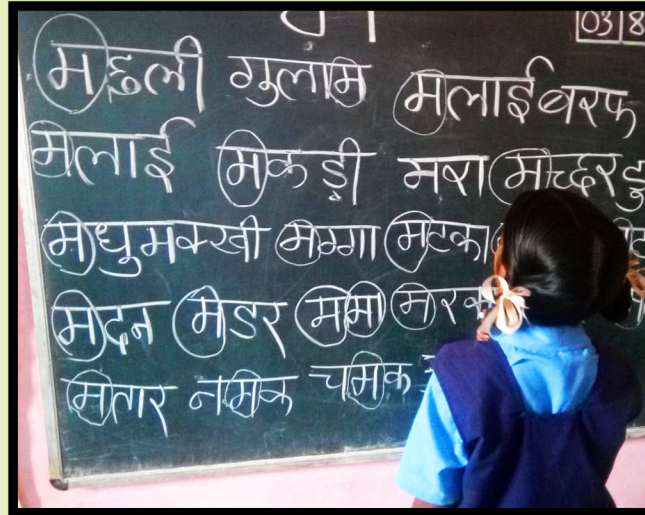 03 8
मछली गुलाम मलाईबरफ
मलाई मकड़ी मरा मोच्छर
मधुमक्खी मग्गा मटका
मदन मेडर मामा मोर
मतार नमक चमिक